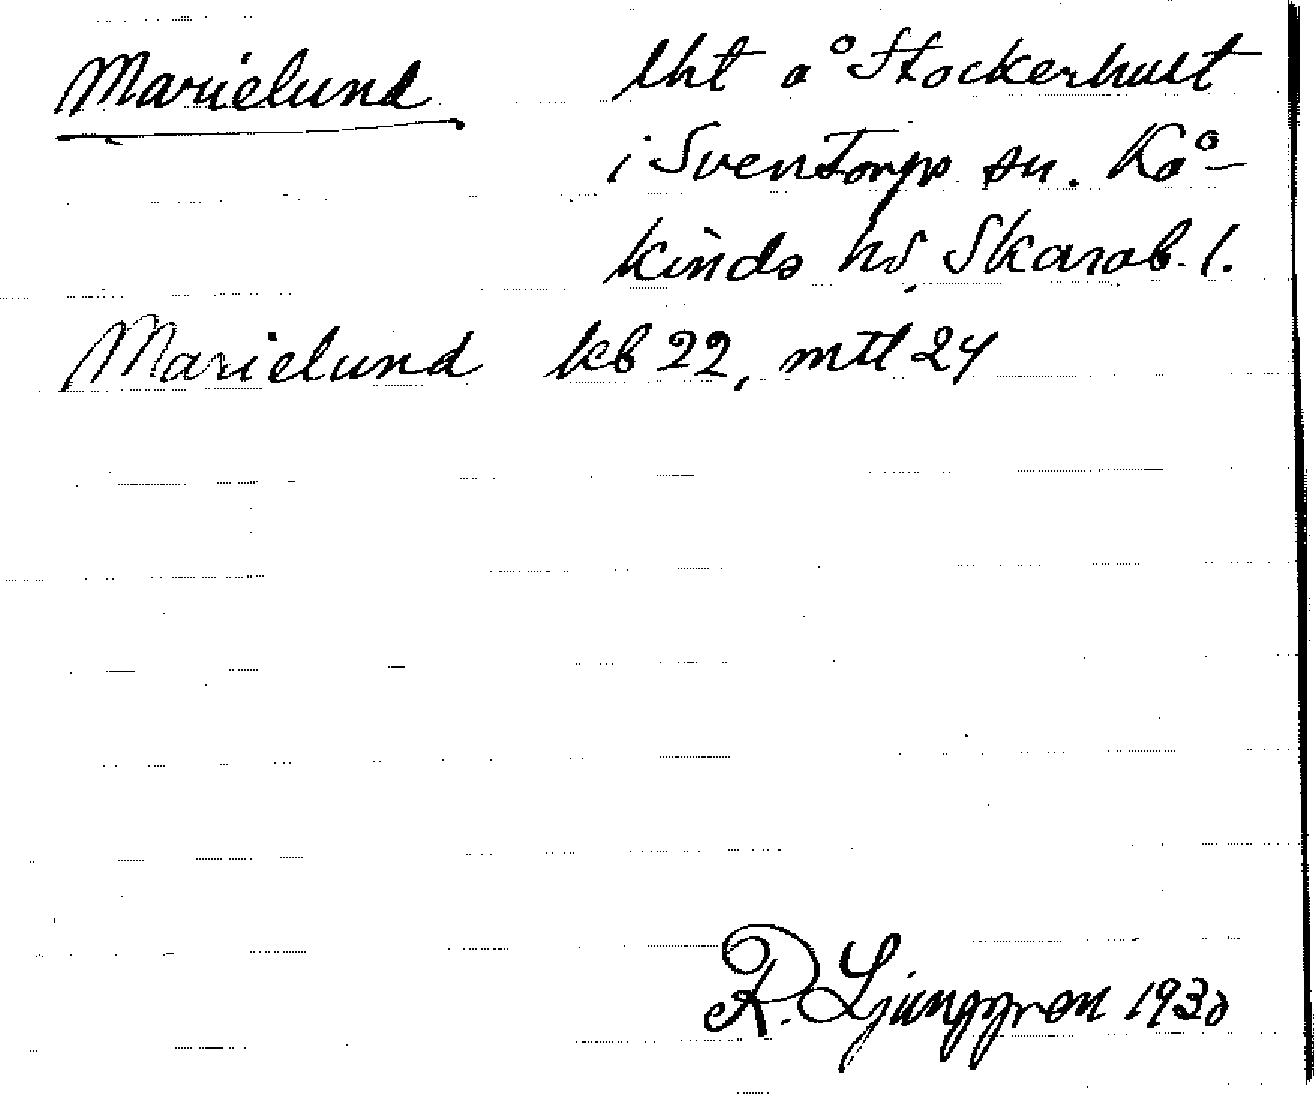 Marielund lht å Stockerhult
i Sventorps sn. Kå-
kinds hd, Skarab. l.
Marielund kb 22, mtl 24
R. Ljunggren 1930